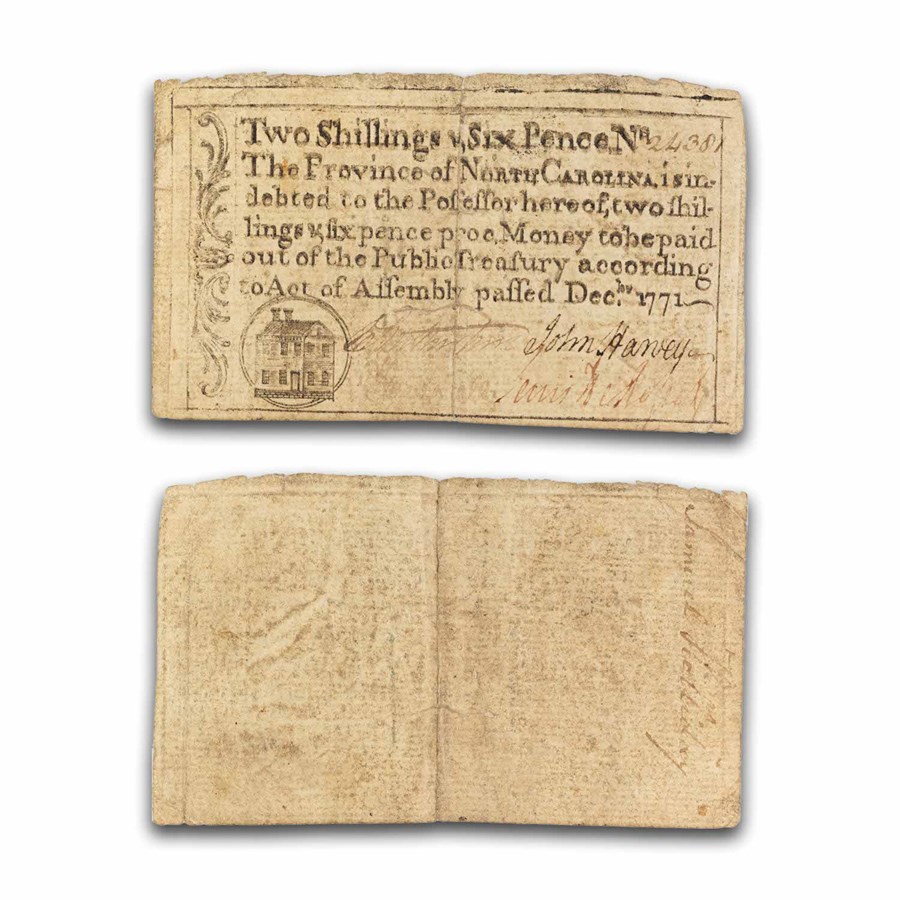 Two Shillings & Six Pence Nᴿ 24381
The Province of NORTH CAROLINA, is in-
debted to the Poſseſsor hereof, two ſhil-
lings & ſix pence proc. Money to be paid
out of the Public Treaſury according
to Act of Aſſembly paſſed Dec.ᵇᵉʳ 1771
John Harvey
Lewis
Samuel